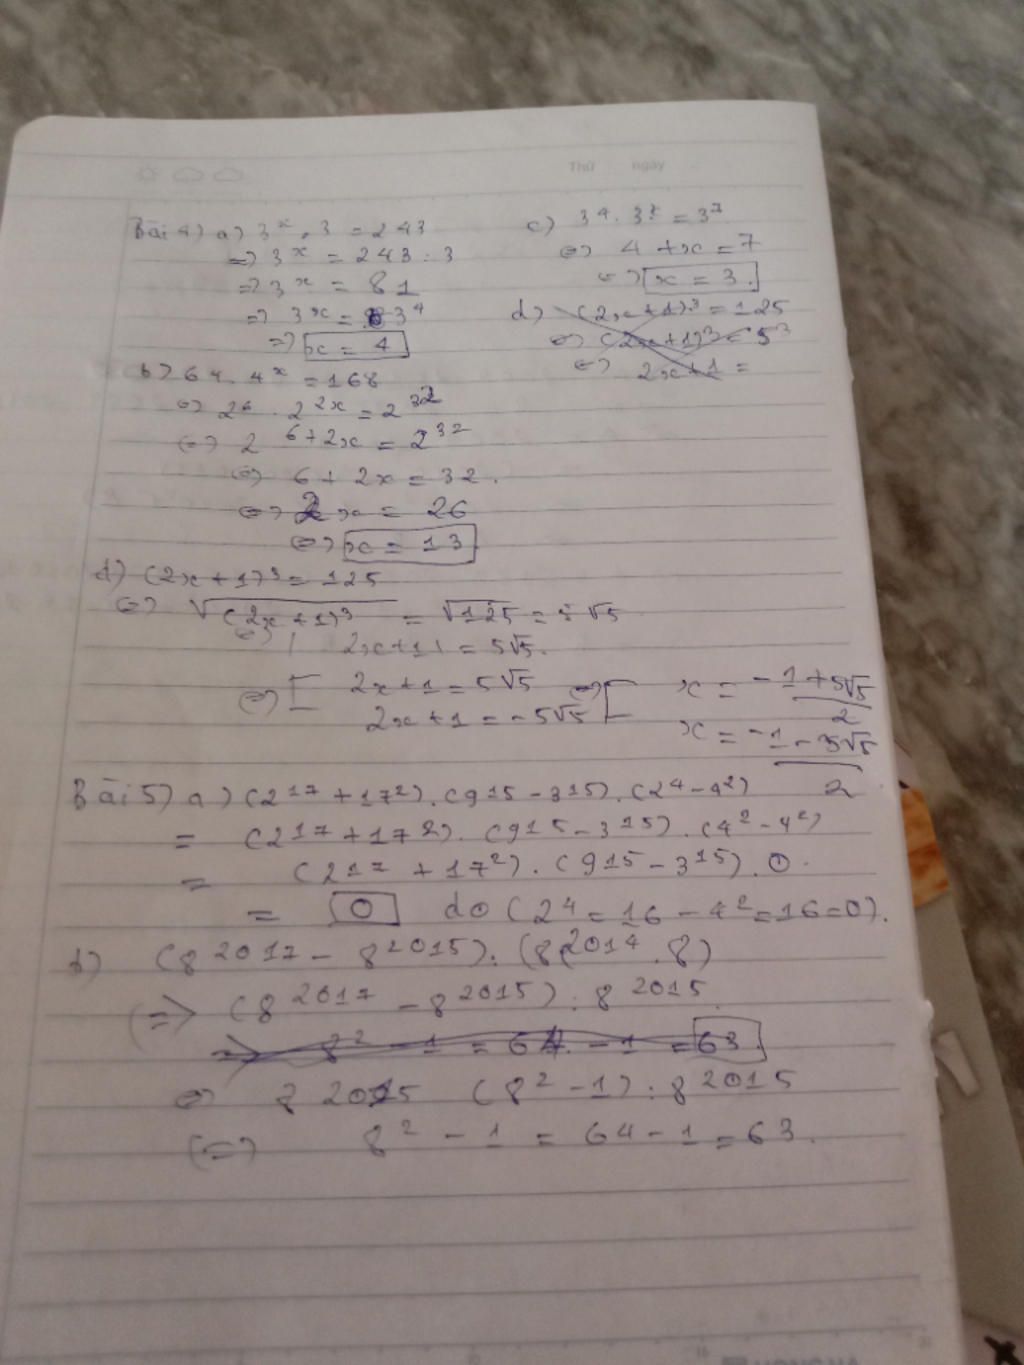 Thứ ngày
Bài 4) a) 3^x . 3 = 243
=> 3^x = 243 : 3
=> 3^x = 81
=> 3^x = 3^4
=> x = 4
b) 64 . 4^x = 16^8
<=> 2^6 . 2^2x = 2^32
<=> 2^6+2x = 2^32
<=> 6 + 2x = 32.
<=> 2x = 26
<=> x = 13
c) 3^4 . 3^x = 3^7
<=> 4 + x = 7
<=> x = 3.
d) (2x + 1)^3 = 125
<=> (2x + 1)^3 = 5^3
<=> 2x + 1 =
d) (2x + 1)^3 = 125
<=> √(2x + 1)^3 = √125 = 5√5
<=> | 2x + 1 | = 5√5.
<=> [ 2x + 1 = 5√5 <=> [ x = (-1 + 5√5)/2
2x + 1 = -5√5 x = (-1 - 5√5)/2
Bài 5) a) (2^17 + 17^2) . (9^15 - 3^15) . (2^4 - 4^2)
= (2^17 + 17^2) . (9^15 - 3^15) . (4^2 - 4^2)
= (2^17 + 17^2) . (9^15 - 3^15) . 0.
= 0 do (2^4 = 16 - 4^2 = 16 = 0).
b) (8^2017 - 8^2015) : (8^2014 . 8)
<=> (8^2017 - 8^2015) : 8^2015
=> 8^2 - 1 = 64 - 1 = 63.
<=> 8^2015 (8^2 - 1) : 8^2015
<=> 8^2 - 1 = 64 - 1 = 63.